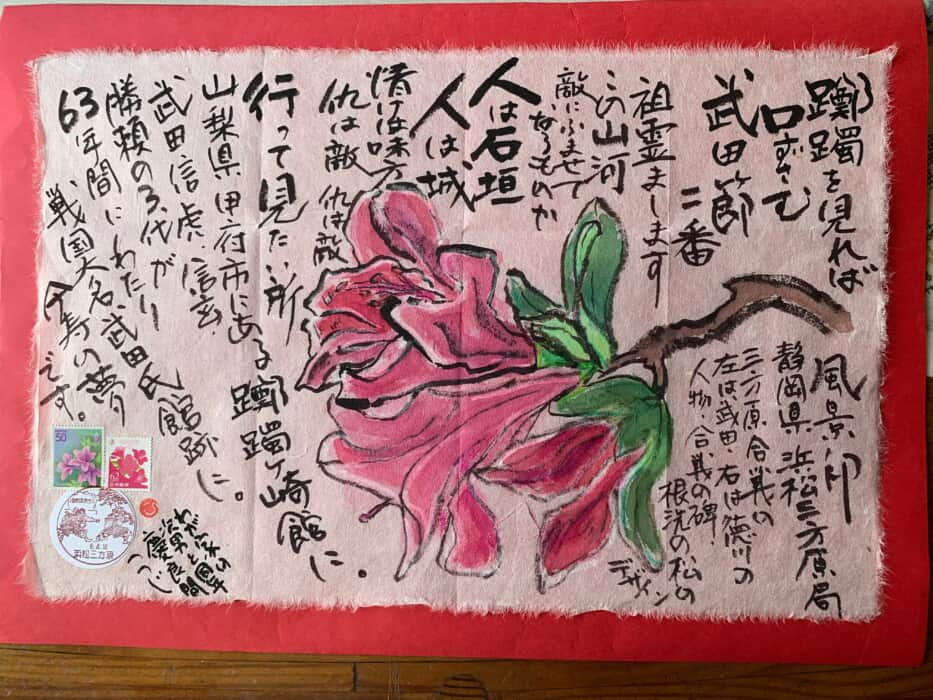 躑躅を見れば
口ずさむ
武田節
二番
祖霊まします
この山河
敵にふませて
なるものか
人は石垣
人は城
情けは味方
仇は敵 仇は敵
行って見たい所
山梨県甲府市にある躑躅ヶ崎館に。
武田信虎、信玄
勝頼の3代が
63年間にわたり武田氏館跡に。
戦国大名
今春の夢
です。
風景印
静岡県浜松三方原局
三方原合戦の
左は武田、右は徳川の
人物・合戦の碑!
根洗の松の
デザイン
50
浜松三方原
つつじ